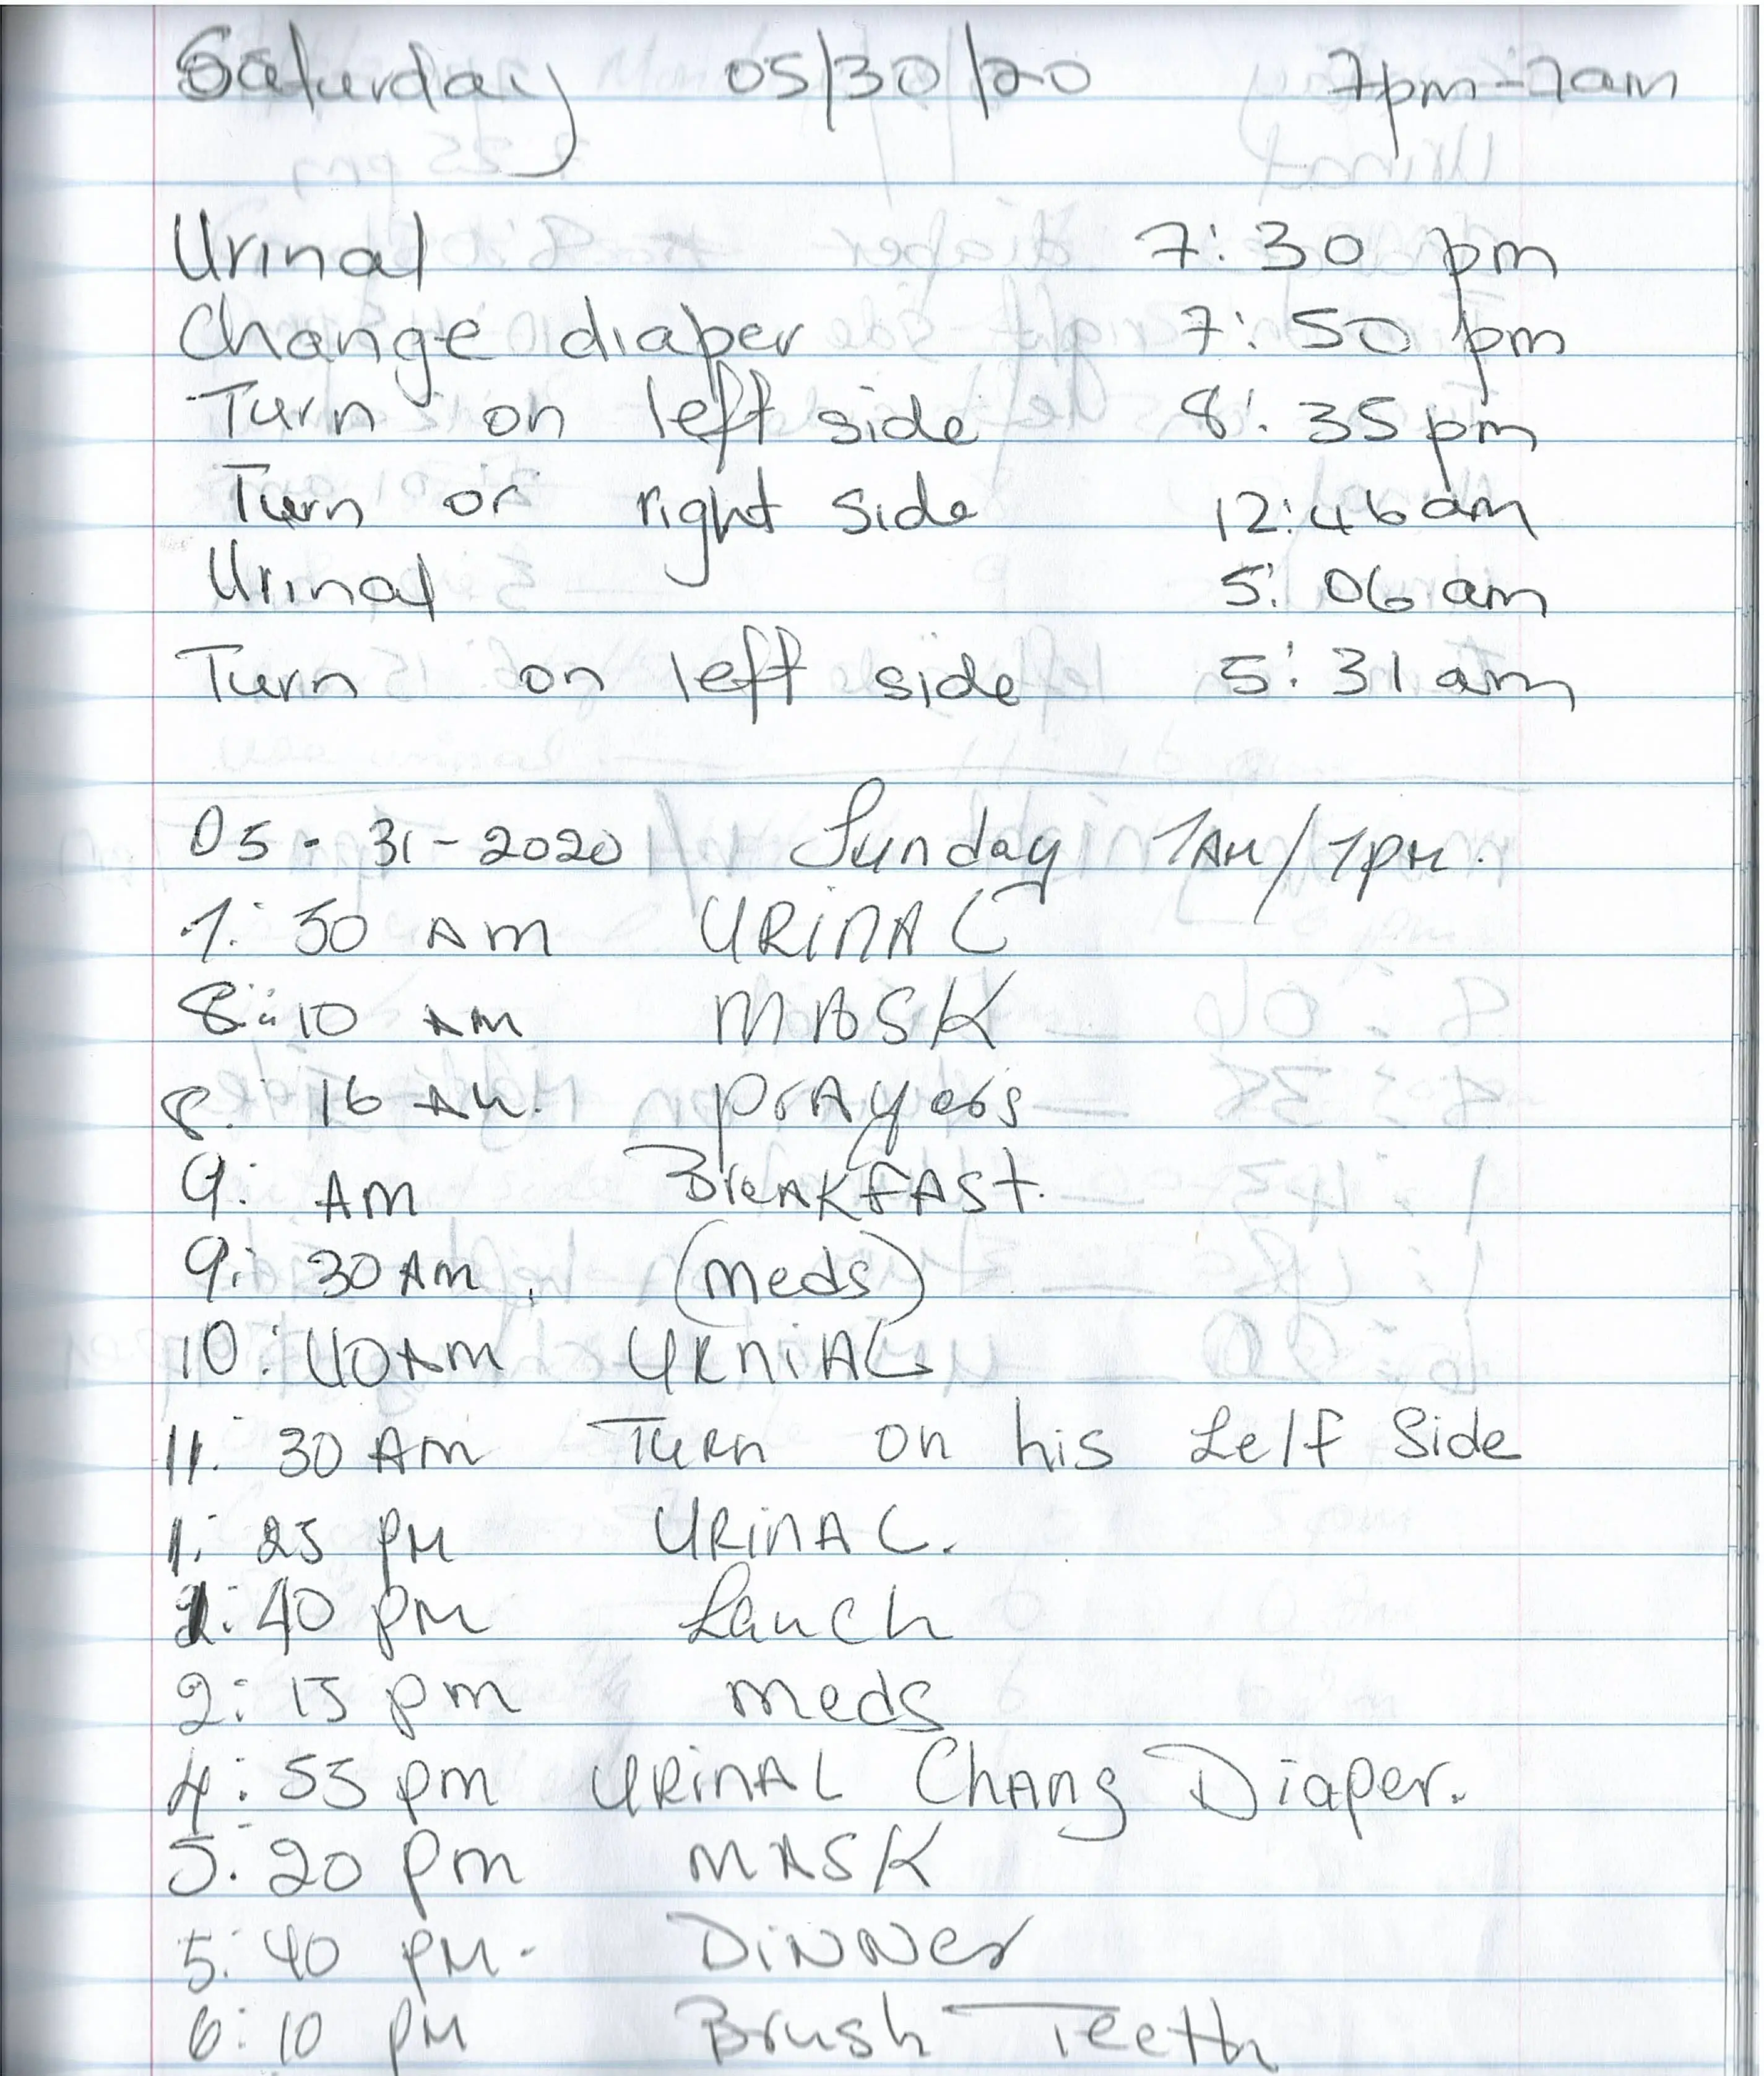 Saturday 05/30/20 7pm-7am
Urinal 7:30 pm
Change diaper 7:50 pm
Turn on left side 8:35 pm
Turn on right side 12:46 am
Urinal 5:06 am
Turn on left side 5:31 am
05-31-2020 Sunday 7AM/7PM.
7:50 AM URINAL
8:10 AM MASK
8:16 AM. prAyers
9: AM BreAKfASt.
9:30 AM. (meds)
10:40 AM URNiAL
11:30 AM Turn on his Lelf Side
1:25 PM URiNAL.
1:40 PM Launch
2:15 pm meds
4:55 pm URiNAL ChAng Diaper.
5:20 pm MASK
5:40 PM- DiNNer
6:10 PM Brush Teeth